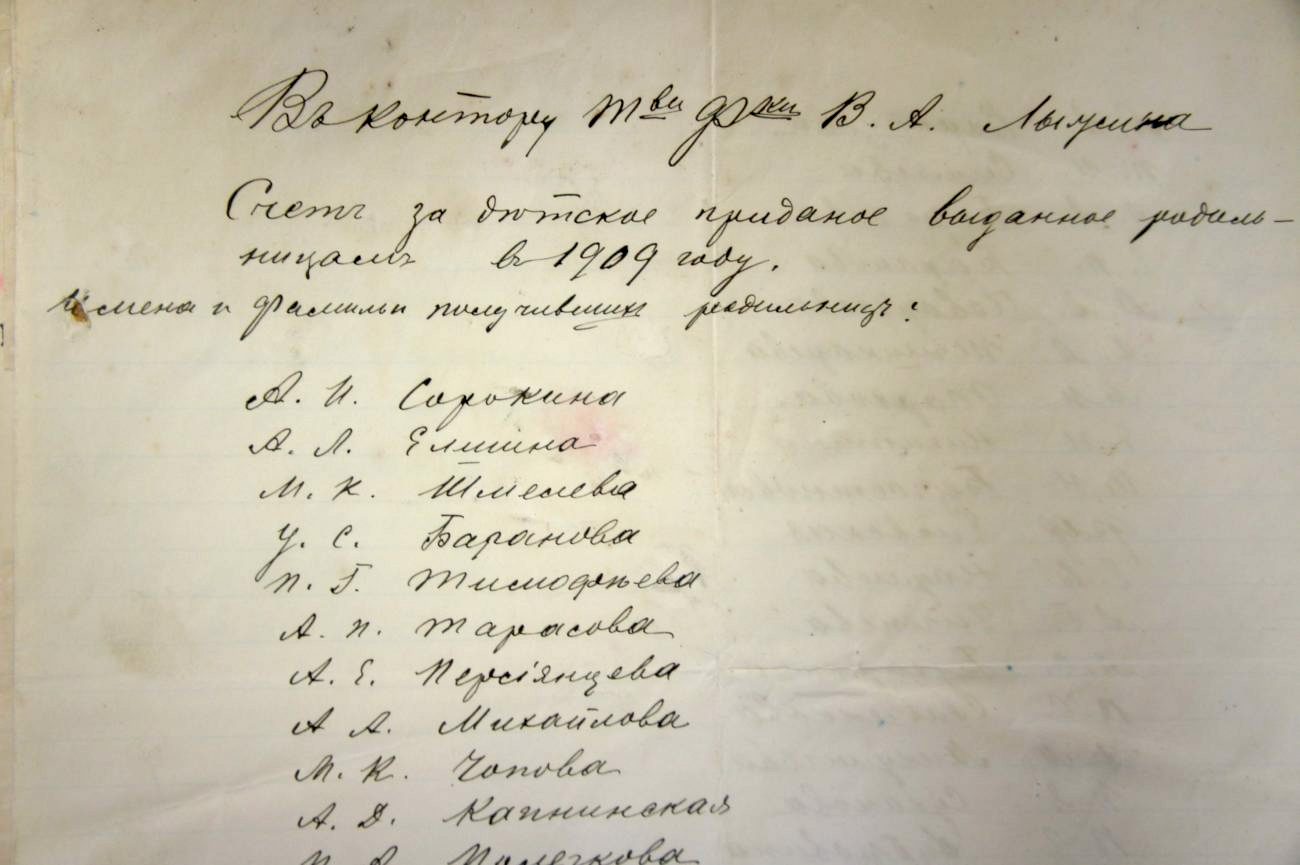 Въ контору Тва ф-ки В. А. Лыжина
Счетъ за дѣтское приданое выданное родиль-
ницамъ въ 1909 году.
Имена и фамильи получившихъ родильницъ:
А. И. Сорокина
А. Л. Елшина
М. К. Шмелева
У. С. Баранова
П. Г. Тимофѣева
А. П. Тарасова
А. Е. Персіянцева
А А. Михайлова
М. К. Чопова
А. Д. Капнинская